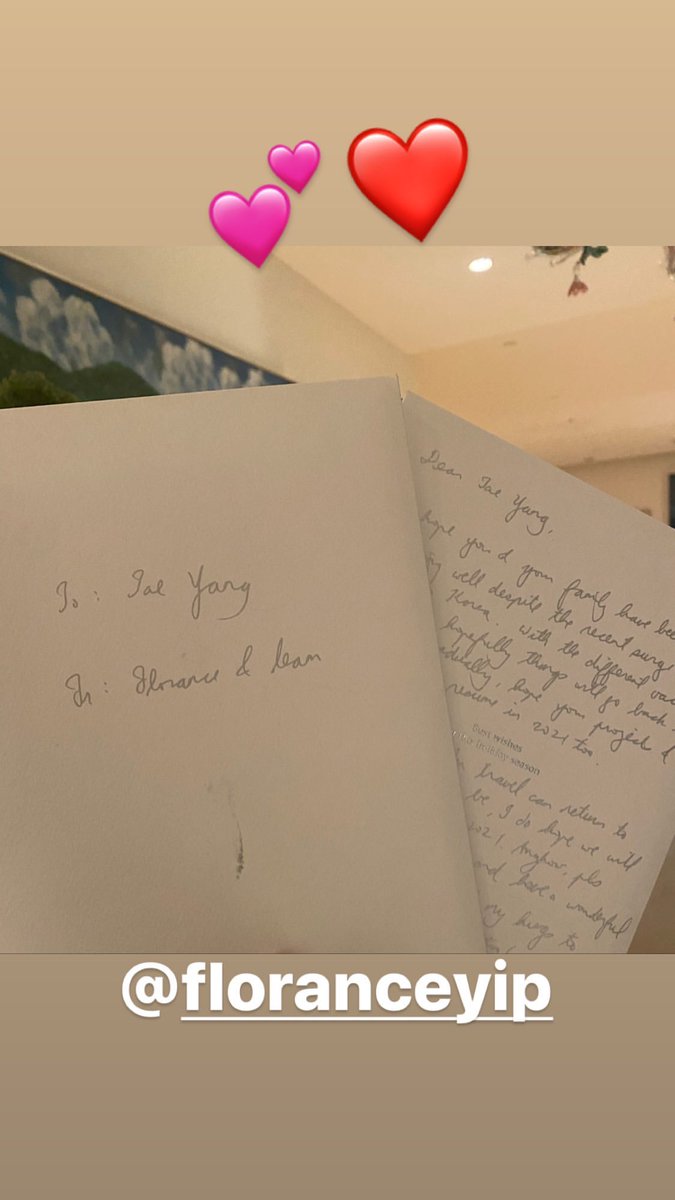 To: Tae Yang
Fr: Florance & team
Dear Tae Yang,
hope you & your family have been
well despite the recent surge
Korea. With the different vac
hopefully things will go back
hope your project &
resume in 2021 too.
Best wishes
holiday season
travel can return to
be, I do hope we will
2021. Anyhow, pls
and have a wonderful
my hugs to
@floranceyip